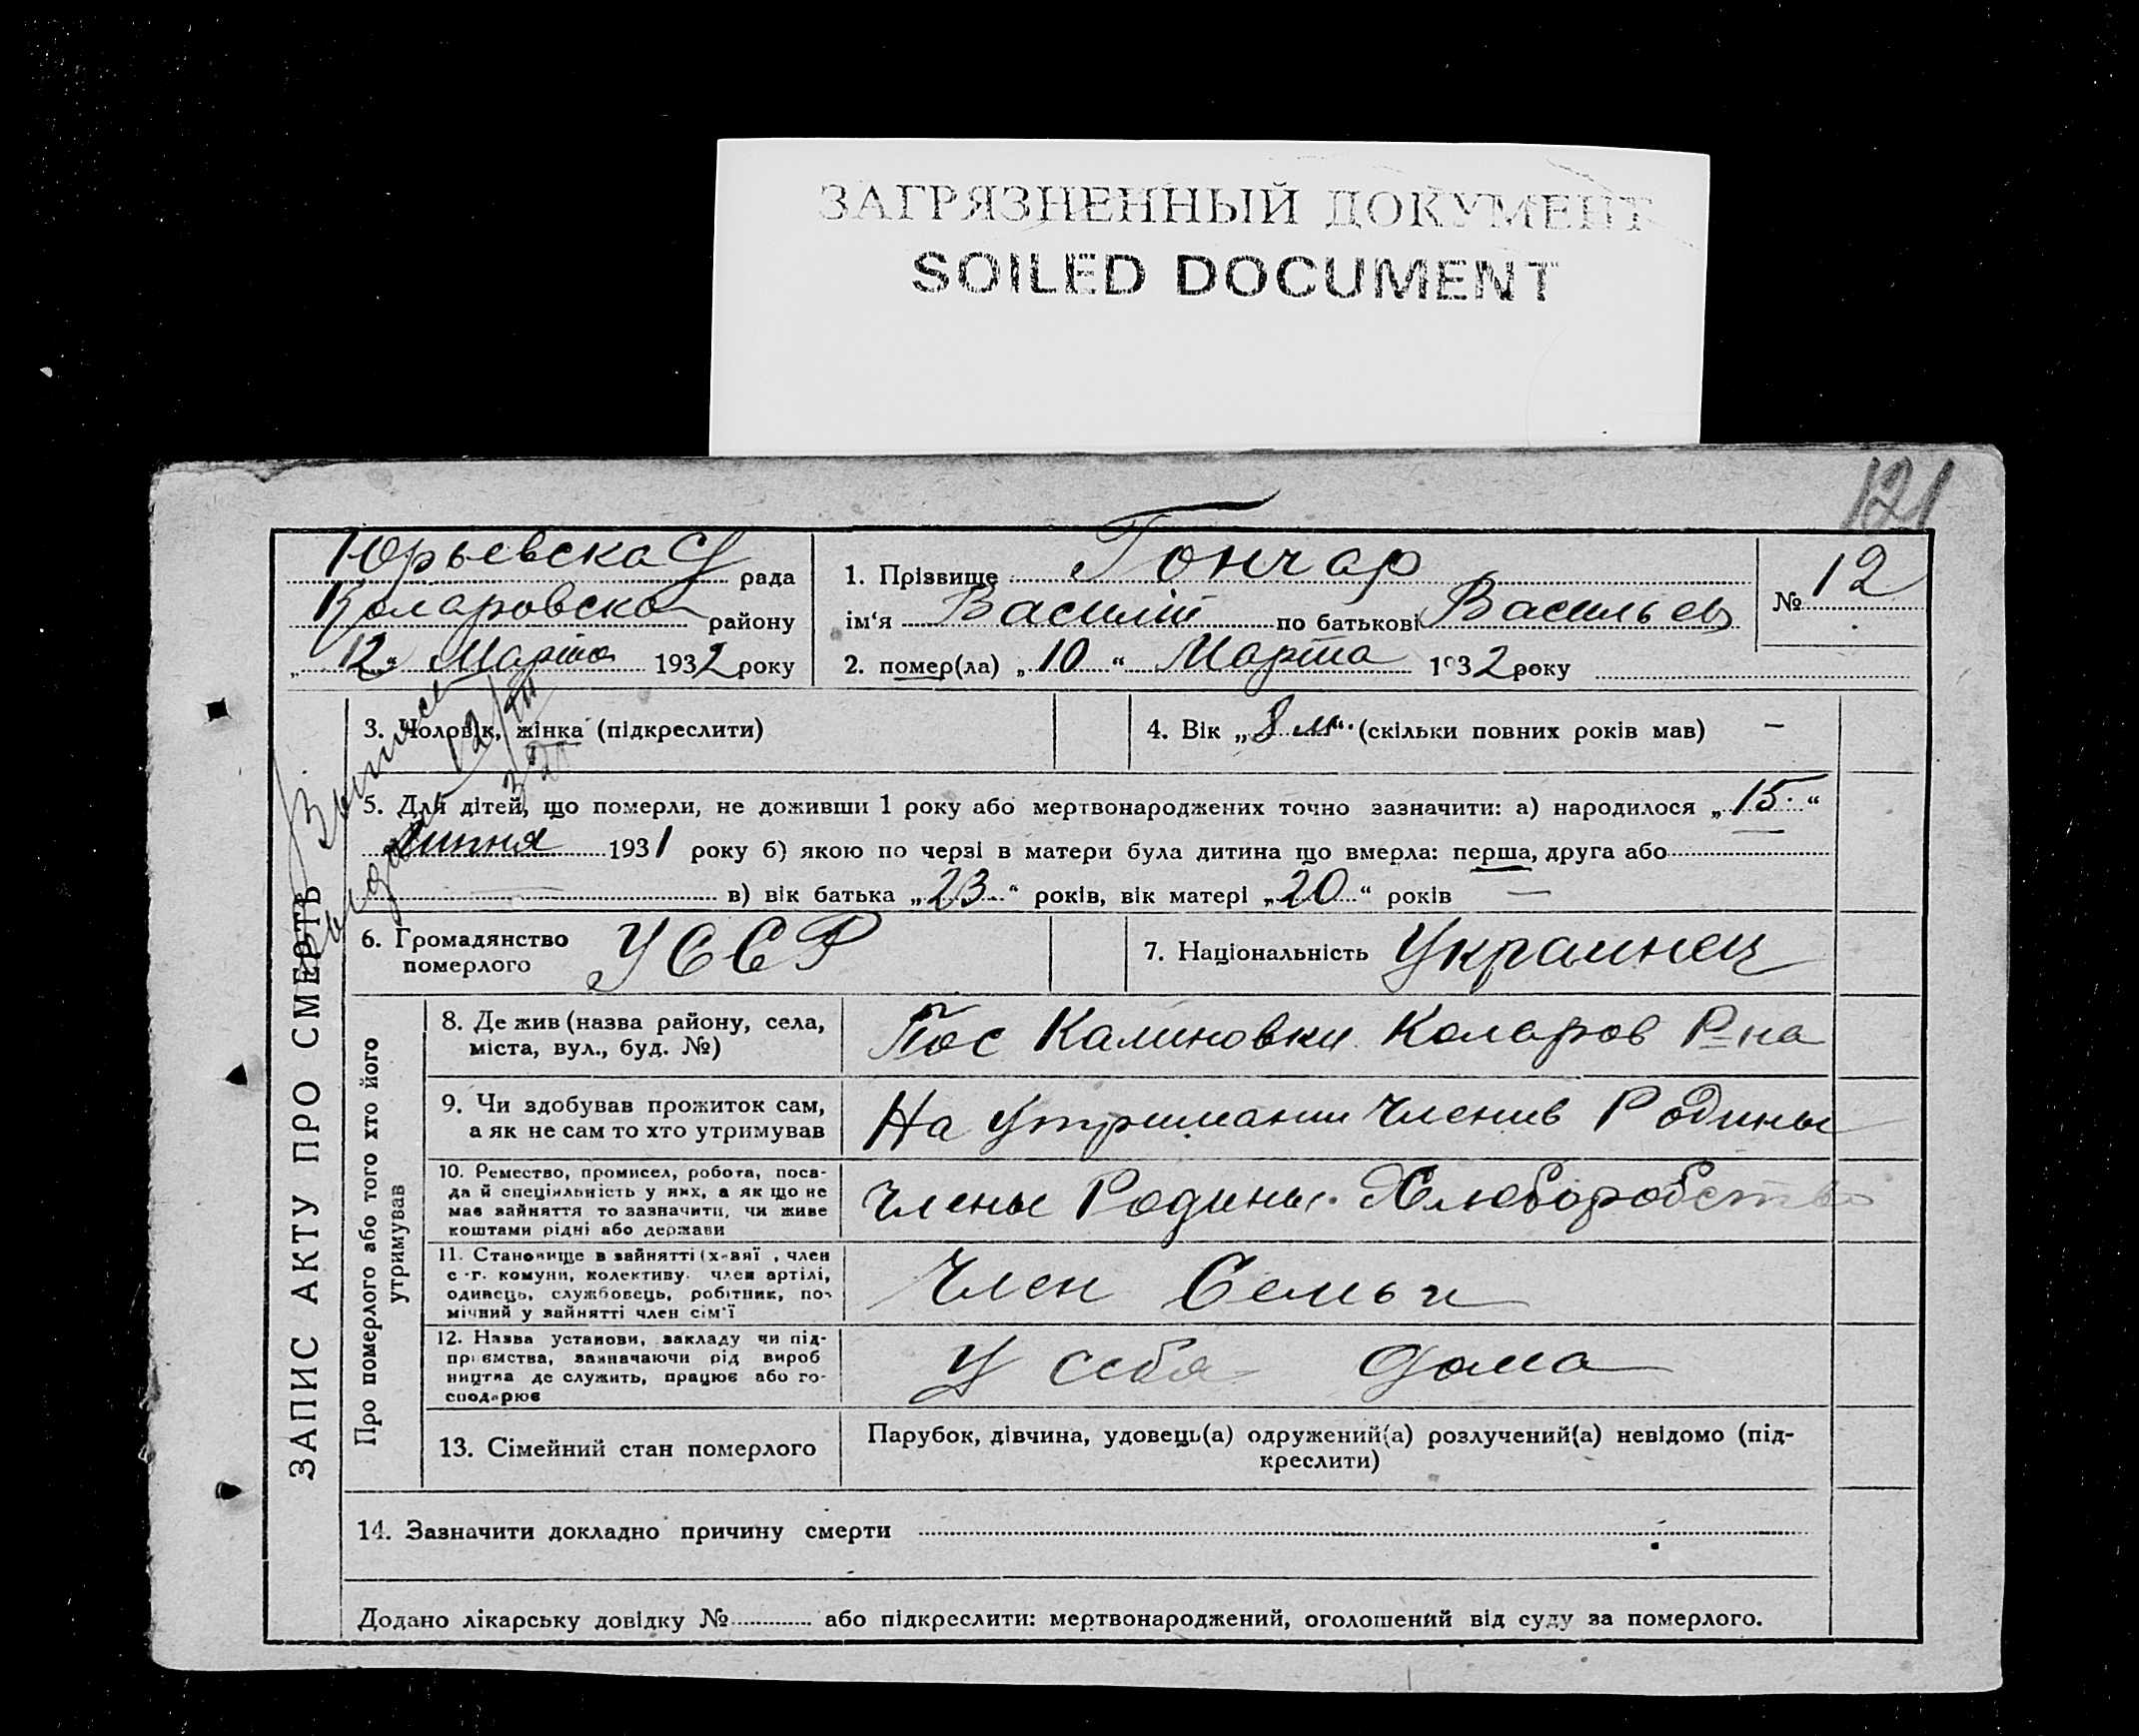 ЗАГРЯЗНЕННЫЙ ДОКУМЕНТ
SOILED DOCUMENT
121
Юрьевска с/ рада
Коларовско району
„12“ Марта 1932 року
1. Прізвище Гончар
ім‘я Василій по батькові Васильев
2. помер(ла) „10“ Марта 1932 року
№ 12
ЗАПИС АКТУ ПРО СМЕРТЬ
3. Чоловік, жінка (підкреслити)
4. Вік „8 м“ (скільки повних років мав) —
5. Для дітей, що померли, не доживши 1 року або мертвонароджених точно зазначити: а) народилося „15“
липня 1931 року б) якою по черзі в матери була дитина що вмерла: перша, друга або
в) вік батька „23“ років, вік матері „20“ років —
6. Громадянство
померлого
УССР
7. Національність Украинец
Про померлого або того хто його
утримував
8. Де жив (назва району, села,
міста, вул., буд. №)
Пос Калиновки Коларов Р-на
9. Чи здобував прожиток сам,
а як не сам то хто утримував
На утримании Членив Родины
10. Ремество, промисел, робота, поса-
да й спеціяльність у них, а як що не
має зайняття то зазначити, чи живе
коштами рідні або держави
Члены Родины. Хлюборобство
11. Становище в зайнятті (х-вяї , член
с -г. комуни, колективу. член артілі,
одинець, службовець, робітник, по-
мічний у зайнятті член сім'ї
Член Семьи
12. Назва установи, закладу чи під-
приємства, зазначаючи рід вироб
ництва де служить, працює або го-
сподарює
У себя дома
13. Сімейний стан померлого
Парубок, дівчина, удовець(а) одружений(а) розлучений(а) невідомо (під-
креслити)
14. Зазначити докладно причину смерти
Додано лікарську довідку № або підкреслити: мертвонароджений, оголошений від суду за померлого.